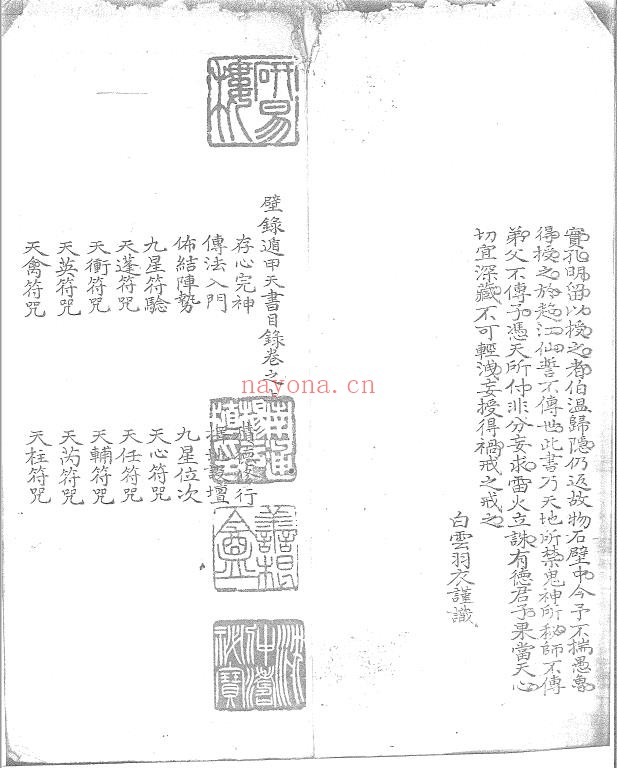 實孔明留以授之者伯溫歸隱仍返故物石壁中今予不揣愚魯
得授之於趙江仙誓不傳也此書乃天地所禁鬼神所秘師不傳
弟父不傳子憑天所付非分妄求雷火立誅有德君子果當天心
切宜深藏不可輕洩妄授得禍戒之戒之
白雲羽衣謹識
研易樓
壁錄遁甲天書目錄卷之
存心完神
行
傳法入門
壇
佈結陣勢
九星位次
九星符驗
天心符咒
天蓬符咒
天任符咒
天衝符咒
天輔符咒
天英符咒
天芮符咒
天禽符咒
天柱符咒
nayona.cn
沈仲濤
祕寶